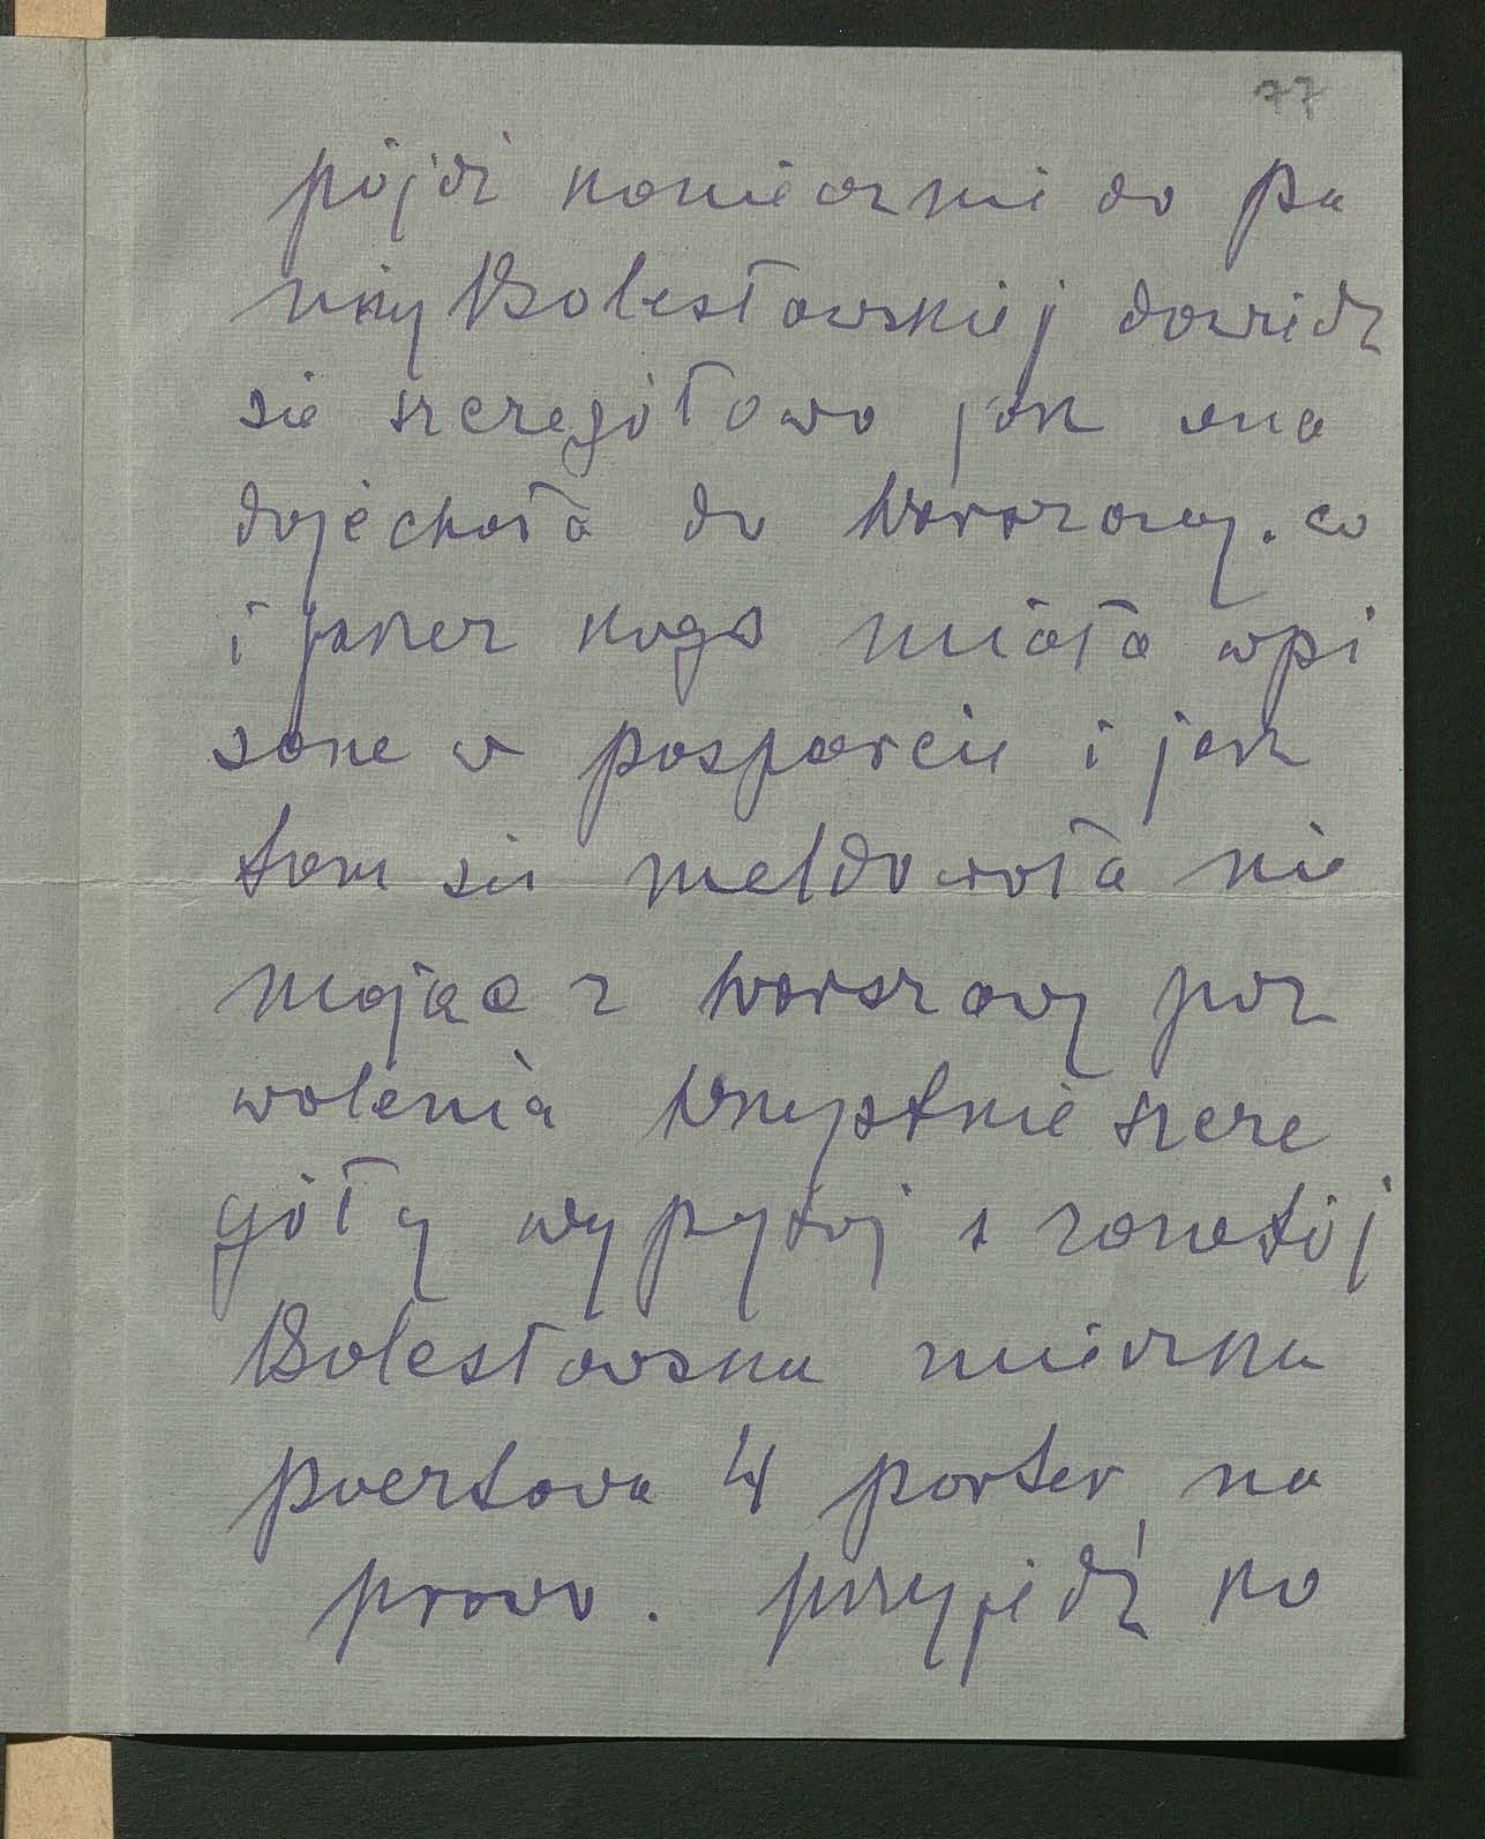 77
pójdź koniecznie do pa
nny Bolesławskiej dowidz
sie szczegółowo jak ona
dojechała do Warszawy. co
i jakez kogo miała wpi
sane w pasparcie i jak
tam sie meldowała nie
mając z Warszawy poz
wolenia Wszystkie szcze
góły wypytaj i
Bolesławska mieszka
4 parter na
prawo. przyjedź ko